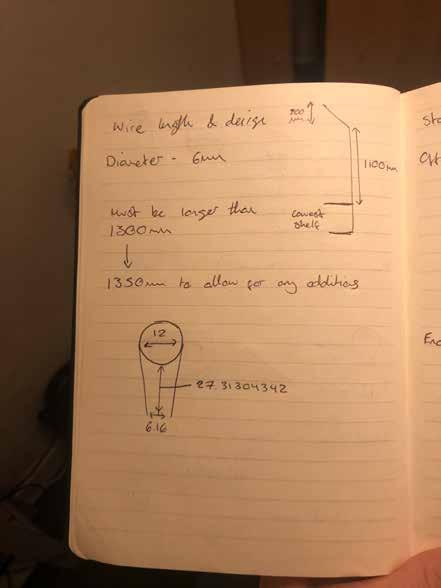 Wire length & design
200
mm
Diameter - 6mm
1100mm
Must be longer than
1300mm
Lowest
shelf
1350mm to allow for any additions
12
27.31304342
6.16